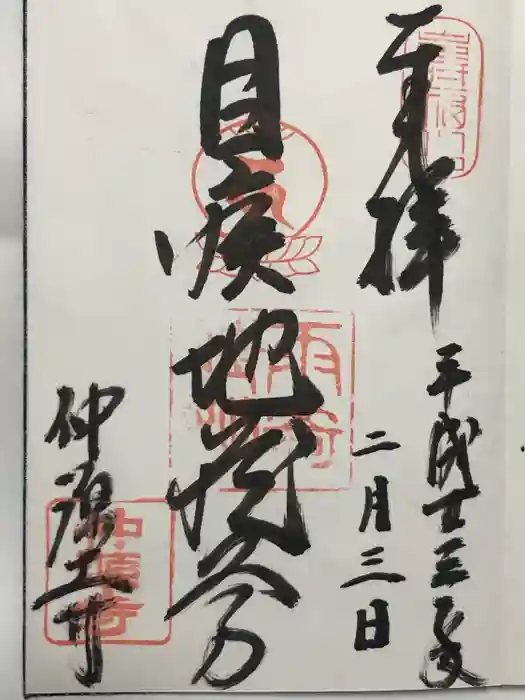 奉拝
平成廿三年
二月三日
目疾地蔵尊
仲源寺
仲源寺